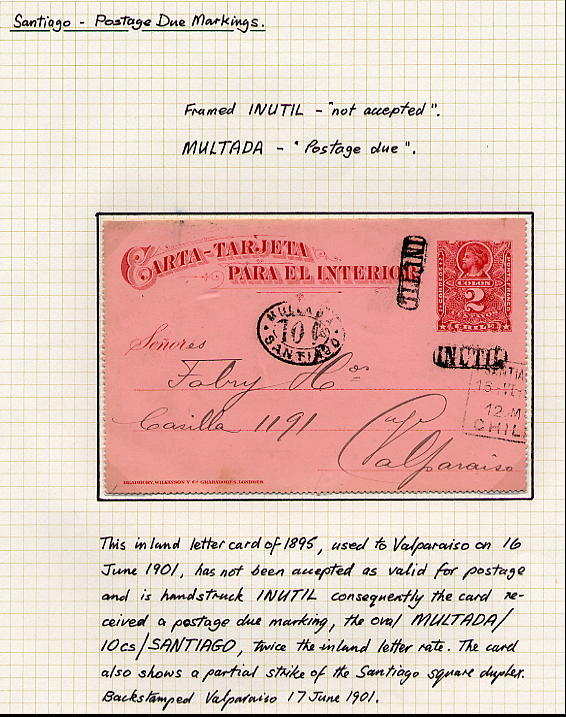 Santiago - Postage Due Markings.
Framed INUTIL - "not accepted".
MULTADA - "Postage due".
CARTA-TARJETA
PARA EL INTERIOR
INUTIL
COLON
2
CENTAVOS
CHILE
MULTADA
10 CS
SANTIAGO
Señores
INUTIL
Fabry Hos
SANTIA
12 M
CHIL
Casilla 1191
Valparaiso
BRADBURY, WILKINSON Y Ca. GRABADORES, LONDRES.
This inland letter card of 1895, used to Valparaiso on 16
June 1901, has not been accepted as valid for postage
and is handstruck INUTIL consequently the card re-
ceived a postage due marking, the oval MULTADA/
10cs/SANTIAGO, twice the inland letter rate. The card
also shows a partial strike of the Santiago square duplex.
Backstamped Valparaiso 17 June 1901.